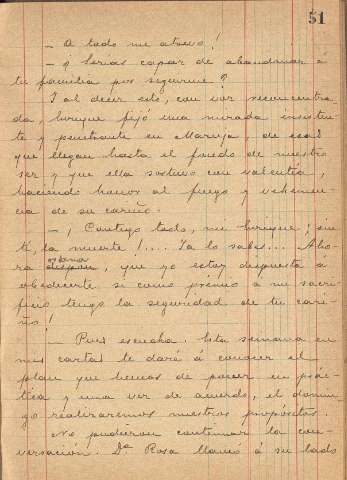 51
- A todo me atrevo!
- y serias capaz de abandonar á
tu familia por seguirme?
Y al decir esto, con voz reconcentra-
da, Enrique fijó una mirada insisten-
te y penetrante en Maruja, de esas
que llegan hasta el fondo de nuestro
ser y que ella sostuvo con valentía,
haciendo honor al fuego y vehemen-
cia de su cariño.
- ¡Contigo todo, mi Enrique; sin
tí, la muerte!.... Ya lo sabes... Aho-
ra ordena, que yo estoy dispuesta á
obedecerte si como premio a mi sacri-
ficio tengo la seguridad de tu cari-
ño!
- Pues escucha. Esta semana en
mis cartas te daré á conocer el
plan que hemos de poner en prác-
tica y una vez de acuerdo, el domin-
go realizaremos nuestros propositos.
No pudieron continuar la con-
versación. Dª Rosa llamó á su lado